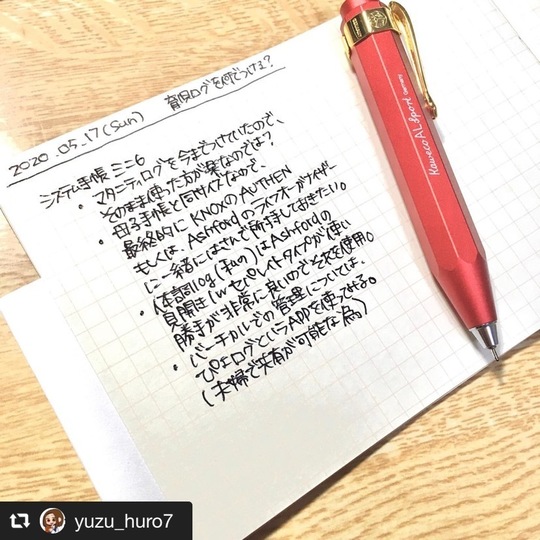 2020.05.17(Sun) 育児ログを何でつける?
システム手帳 ミニ6
・マタニティログを今までつけていたので、
そのまま使った方が楽なのでは?
・母子手帳と同サイズなので、
最終的にKNOXのAUTHEN
もしくは、Ashfordのライフオーガナイザー
に一緒にはさんで所持しておきたい。
・体調log(私の)はAshfordの
見開き1wセパレイトタイプが使い
勝手が非常に良いのでそれを使用。
・バーチカルでの管理については、
ぴよログというAppを使ってみる。
(夫婦で共有が可能な為)
Kaweco AL Sport Germany
yuzu_huro7